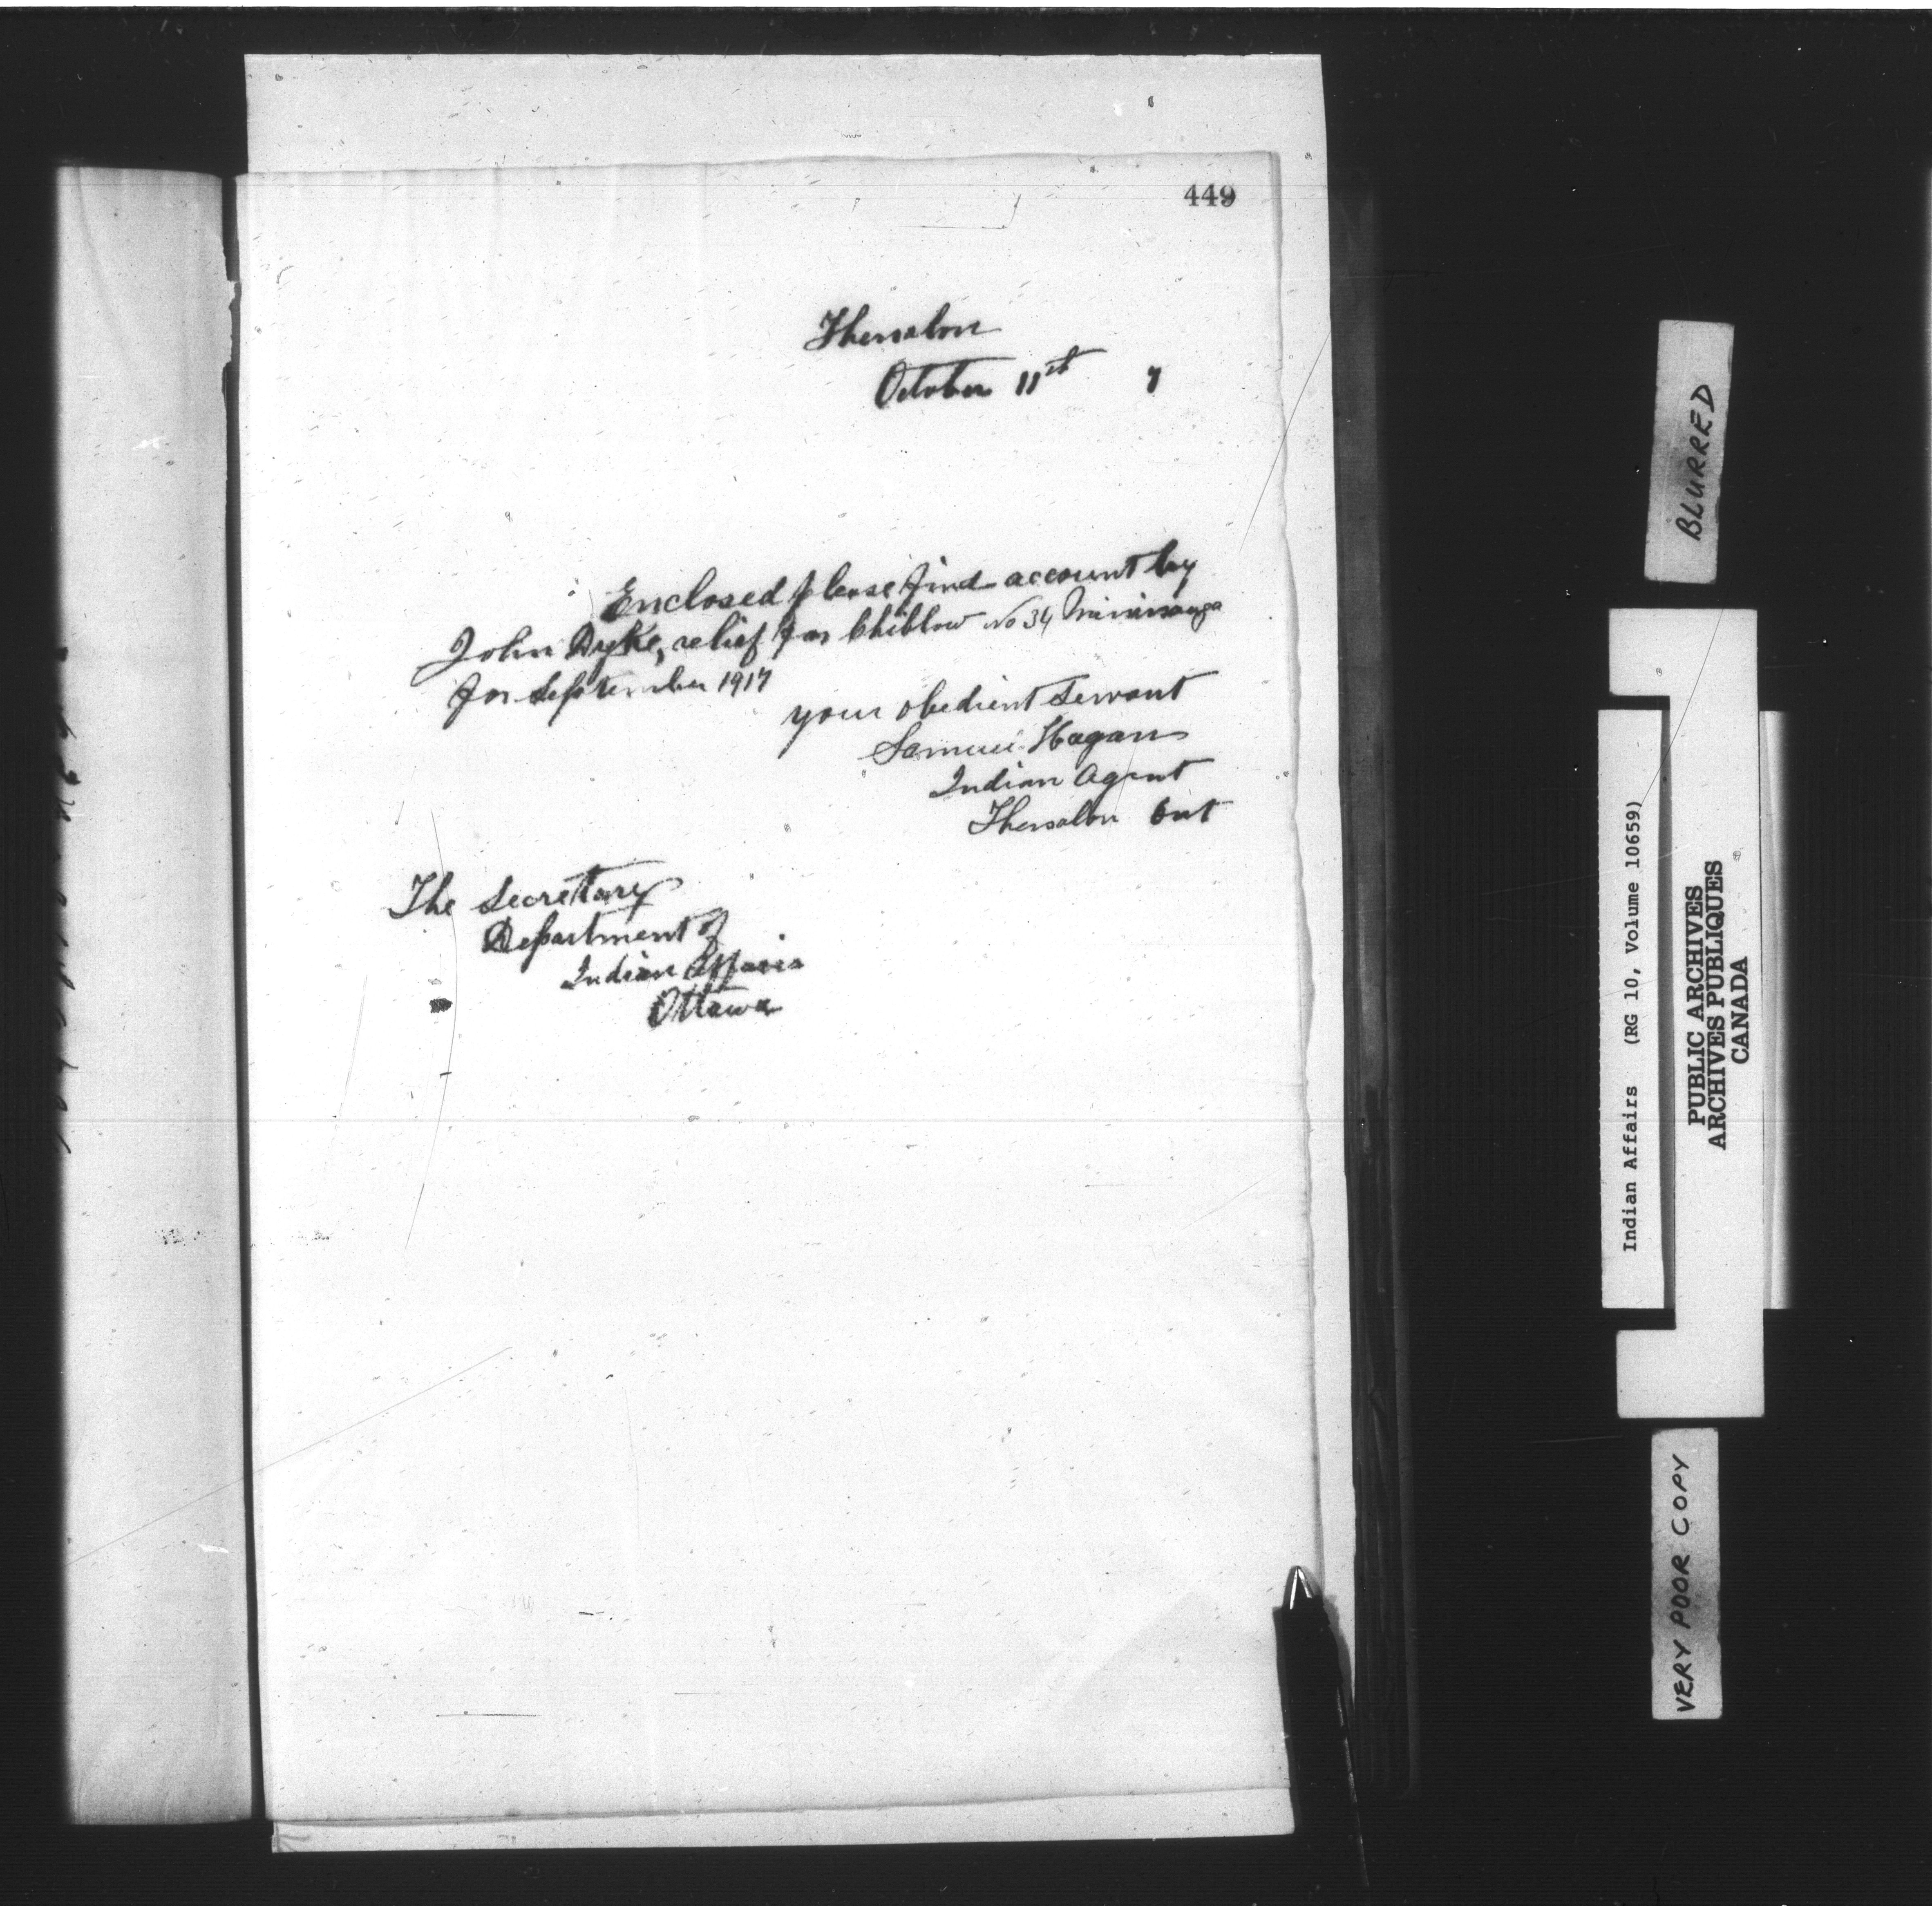 449
Thessalon
October 11th 7
Enclosed please find account by
John Dyke, relief for Chiblow No 34 Mississauga
for September 1917
your obedient servant
Samuel Hagan
Indian Agent
Thessalon Ont
The Secretary
Department of
Indian Affairs
Ottawa
BLURRED
Indian Affairs (RG 10, Volume 10659)
PUBLIC ARCHIVES
ARCHIVES PUBLIQUES
CANADA
VERY POOR COPY